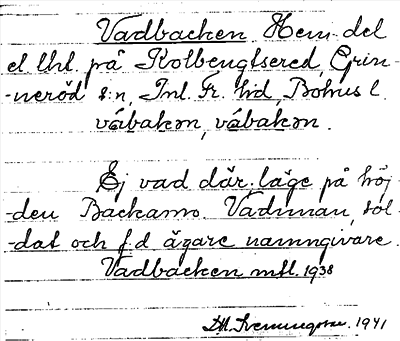 Vadbacken. Hem.del
el. lht. på Kolbengtsered, Grin-
-neröd s:n, Inl. Fr. hd, Bohus l.
våbakən, våbakən.
Ej vad där; läge på höj-
-den Backamo. Vadman, sol-
-dat och f.d ägare namngivare.
Vadbacken mtl. 1938
1941